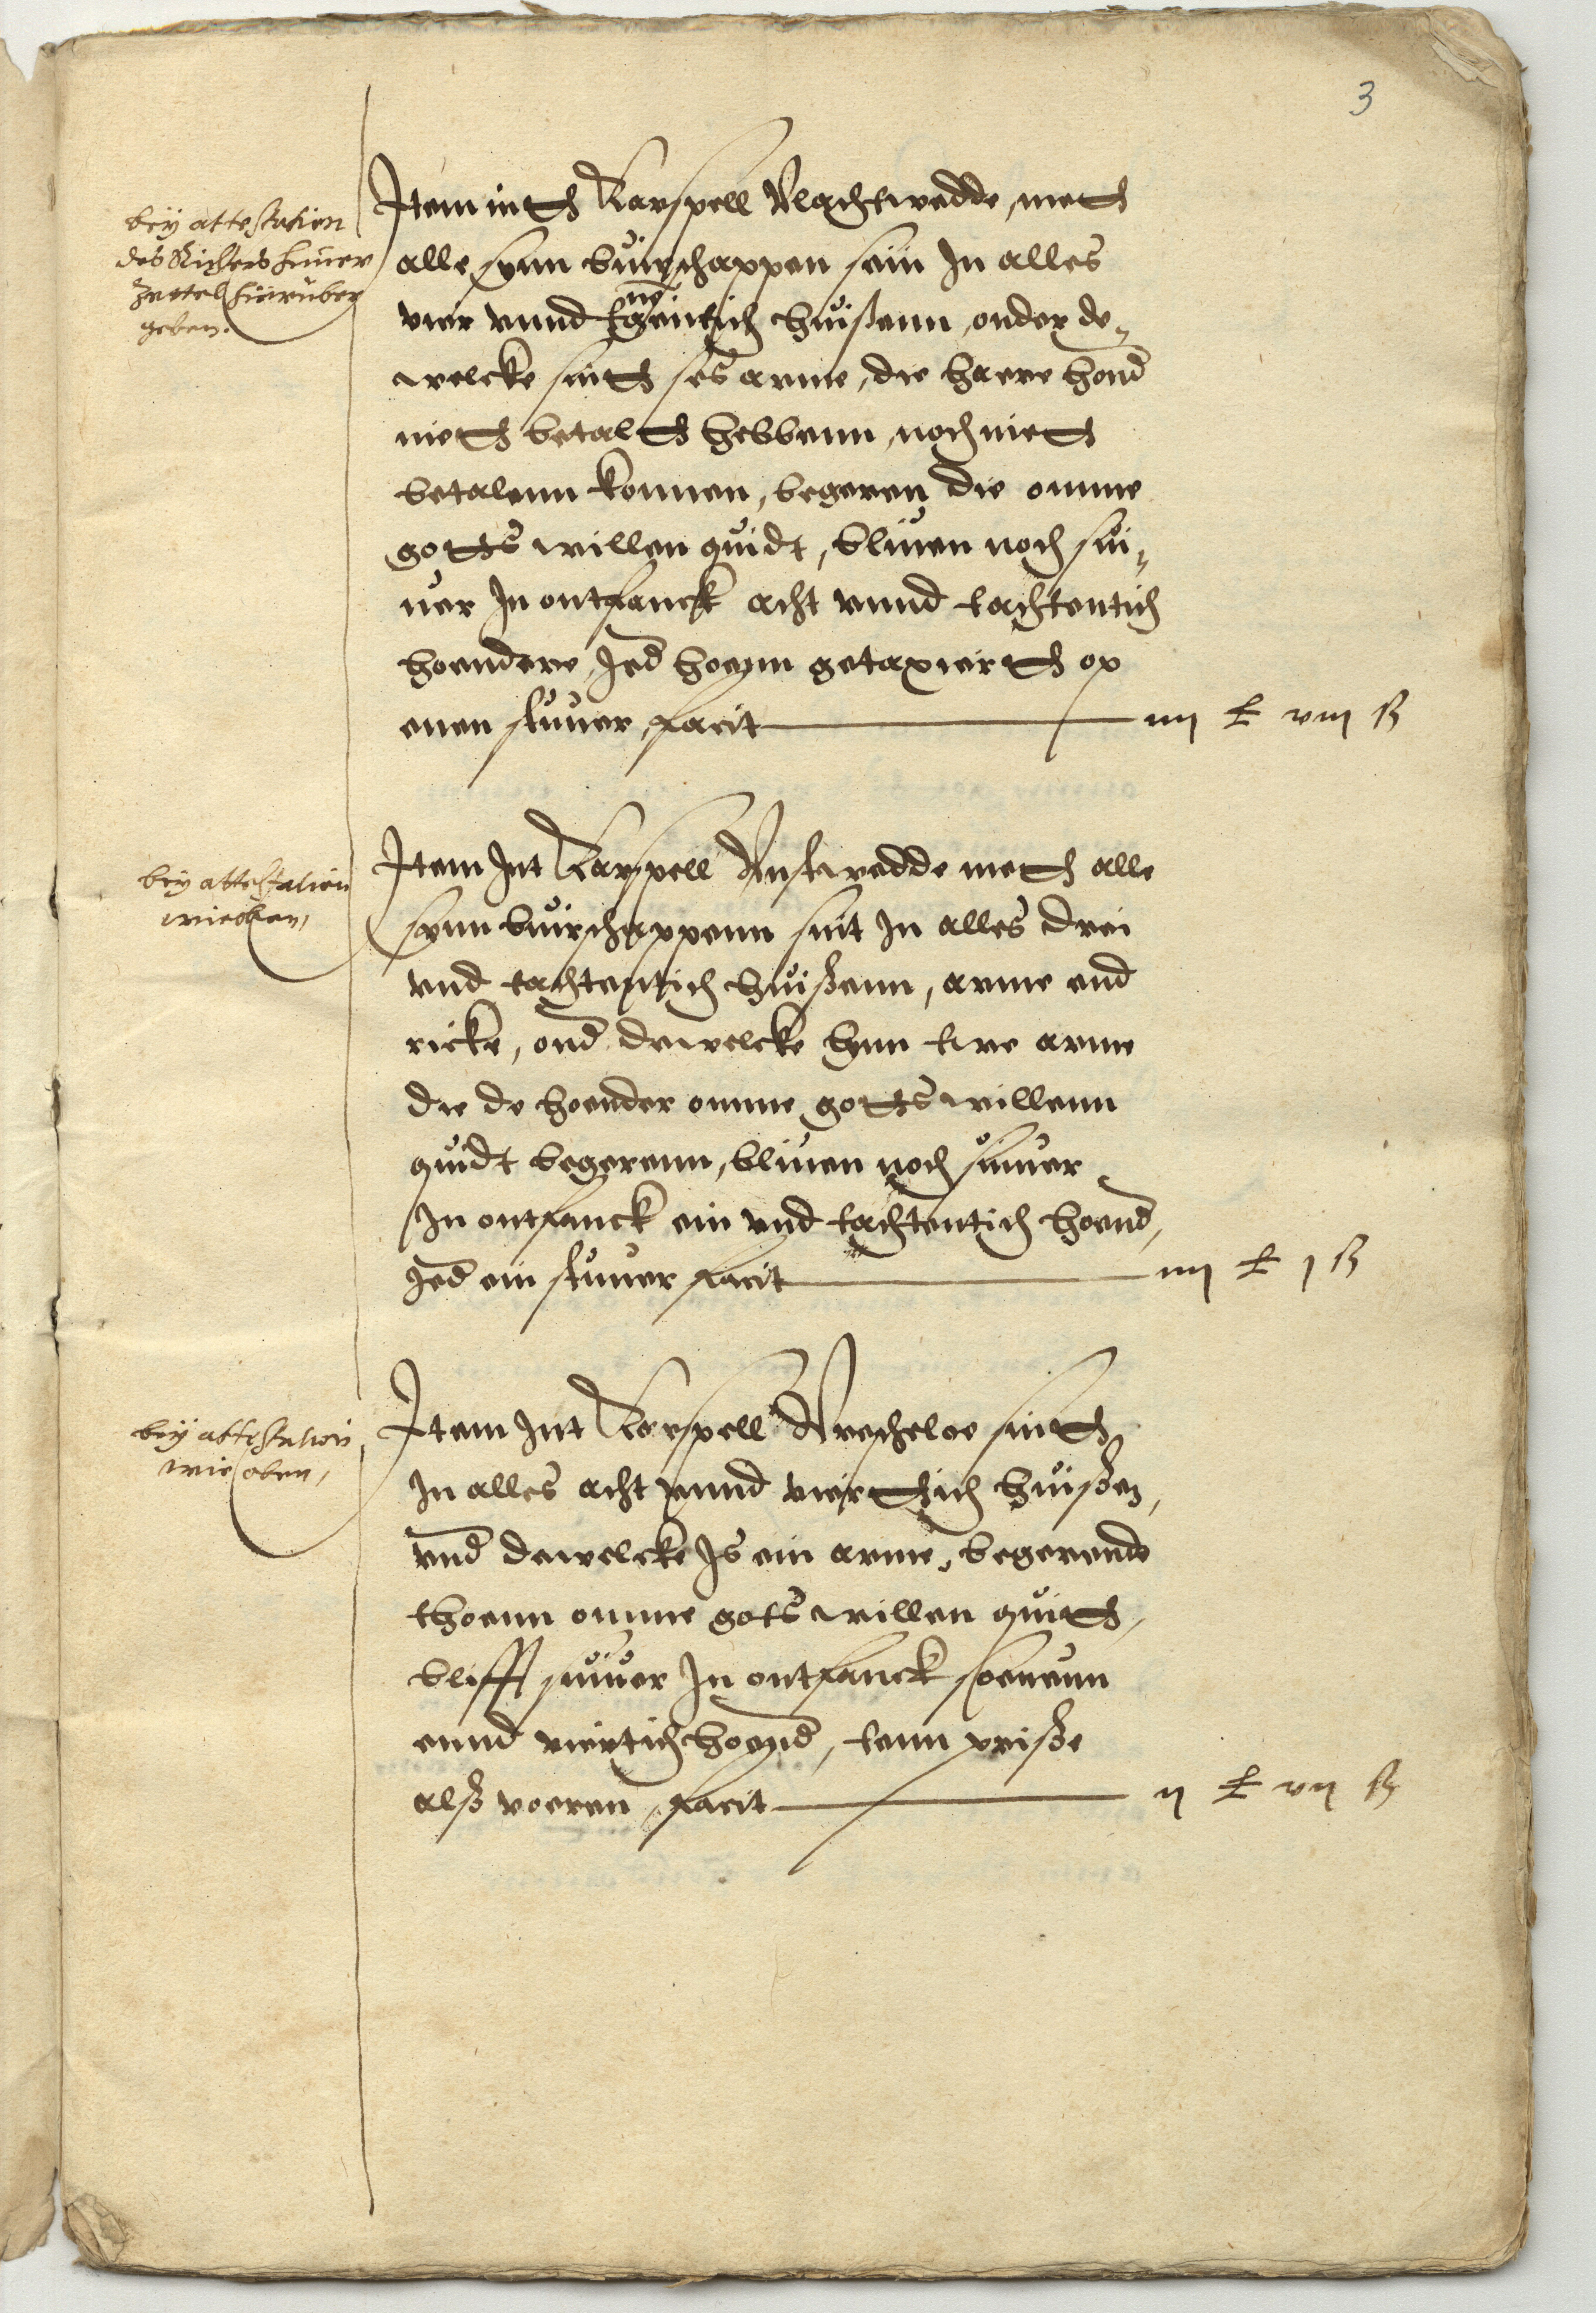 3
bey attestation
des Richters hiuer
Zettel hierüber
geben.
Item inth Karspell Vlachtwedde, meth
alle synn buirschappen sein In alles
vier vnnd tnegentich huißenn, onder de„
welcke sinth ses arme, die haere hond
nieth betalth hebbenn, noch nieth
betalenn konnen, begeren die omme
gotts willen quidt, bliuen noch sui„
uer In ontfanck acht vnnd tachtentich
hoendere, Jed hoenn getaxierth op
enen stuuer, facit — iiij ₤ viij ß
bey attestation
wie oben,
Item Int Karspell Onstwedde meth alle
synn buirschappenn sint In alles drei
vnd tachtentich huißenn, arme end
ricke, ond dewelcke synn twe arme
die de hoender omme gotts willenn
quidt begerenn, bliuen noch suiuer
In ontfanck ein vnd tachtentich hoend,
Jed ein stuuer facit — iiij ₤ j ß
bey attestation
wie oben,
Item Int Karspell Vrescheloe sinth
In alles acht vnnd vierthich huißen,
vnd dewelcke Is ein arme, begerende
thoenn omme gots willen quith,
blifft suiuer In ontfanck soeuenn
ennd viertich hoend, tenn priße
alß voeren, facit — ij ₤ vij ß